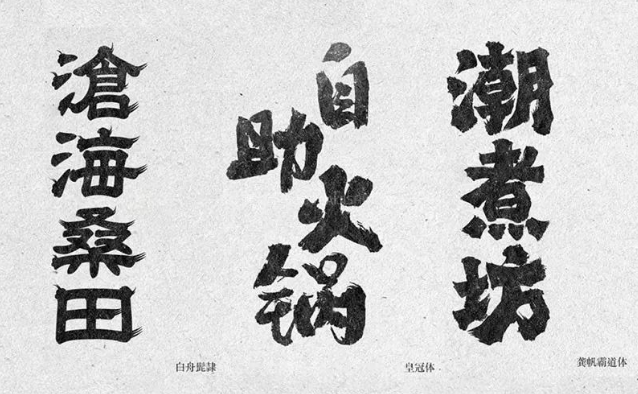 滄海桑田
自助火锅
潮煮坊
白舟髭隷
皇冠体
龚帆霸道体